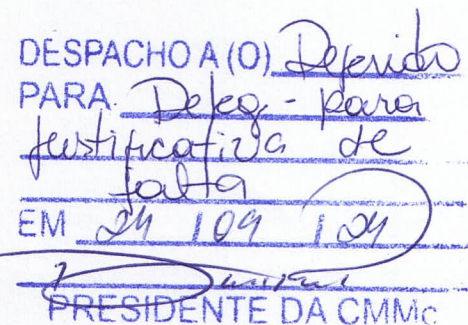 DESPACHO A (O) Deferido
PARA Deleg - para
justificativa de
falta
EM 24 / 09 / 24
PRESIDENTE DA CMMc